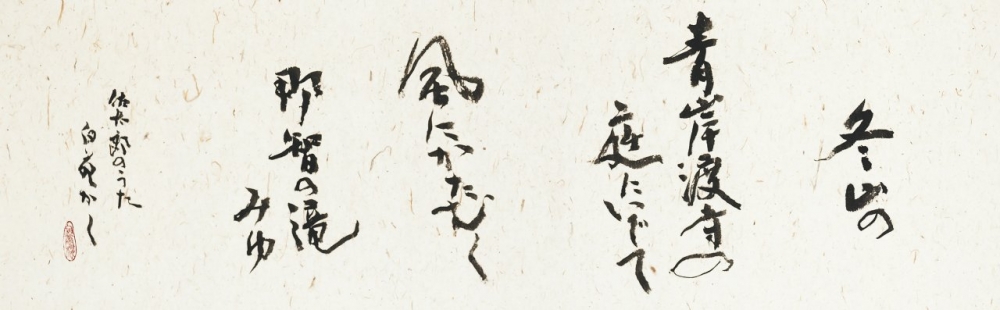 冬山の
青岸渡寺の
庭にいでて
風にかたむく
那智の滝
みゆ
佐太郎のうた
白苑かく